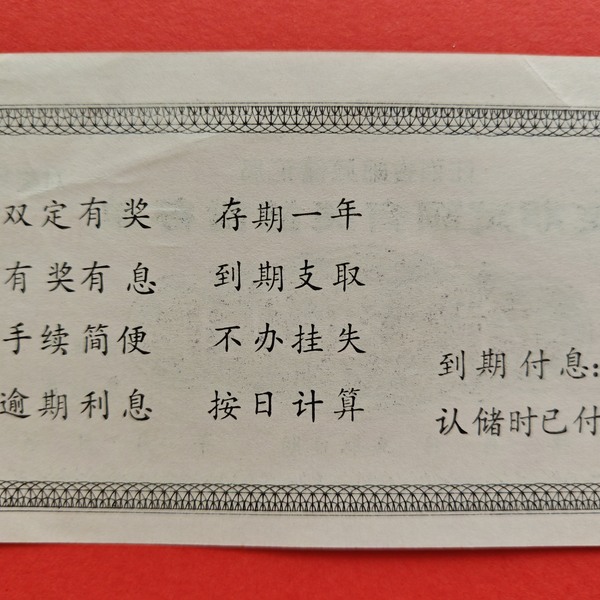 双定有奖 存期一年
有奖有息 到期支取
手续简便 不办挂失
逾期利息 按日计算
到期付息:
认储时已付